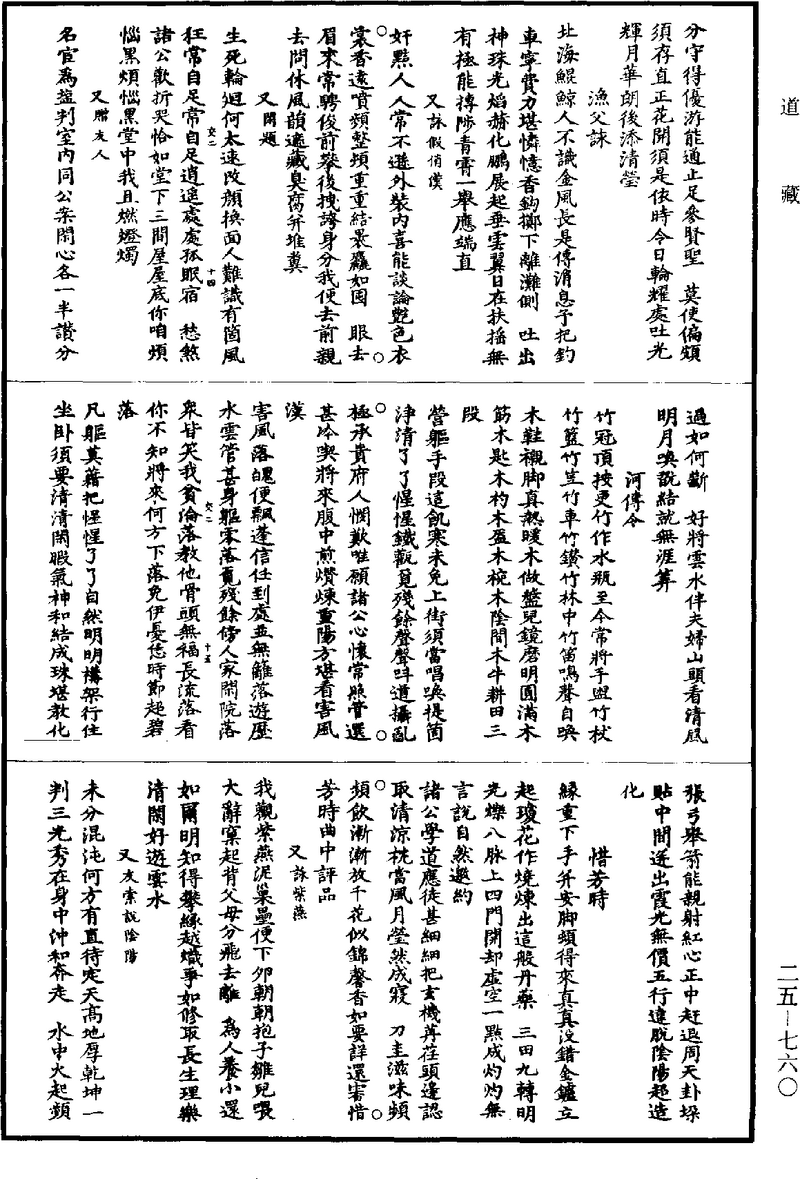 道藏
二五—七六〇
分守得優游能通止足參賢聖　莫使偏頗
須存直正花開須是依時令日輪耀處吐光
輝月華朗後添清瑩
漁父詠
北海鯤鯨人不識金風長是傳消息予把釣
車寧費力堪憐憶香鈎擲下離灘側　吐出
神珠光焰赫化鵬展起垂雲翼日在扶搖無
有極能摶陟青霄一舉應端直
又詠假伯僕
奸黠人人常不遜外裝內喜能談論艷色衣
裳香遠噴頻整頓重重結裹羅如囤　眼去
眉來常騁俊前發後拽誇身分我便去前親
去問休風韻遮藏臭腐并堆糞
又閑題
生死輪迴何太速改顏換面人難識有箇風
狂常自足常自足逍遙處處孤眠宿　愁煞
諸公歡折哭恰如堂下三間屋屋底你咱煩
惱黑煩惱黑堂中我且燃燈燭
又贈友人
名宦為㨂判室內同公案閑心各一半讚分
交二
十四
過如何斷　好將雲水伴夫婦山頭看清風
明月喚說結就無涯算
河傳令
竹冠頂按更竹作水瓶至今常將手盥竹杖
竹籃竹笠竹車竹鑽竹林中竹笛鳴聲自喚
木鞋襯脚真熱暖木做盤兒鏡磨明圓滿木
筯木匙木杓木盔木椀木陰間木牛耕田三
段
營軀手段這飢寒未免上街須當唱喚提箇
淨清了了惺惺鐵觀覓殘餘聲聲呌道攝亂
極承貴府人憫歎唯願諸公心懷常照管選
甚冷喫將來腹中煎爨煉重陽方堪看害風
漢
害風落魄便飄蓬信任到處並無離落遊歷
水雲管甚身軀零落覓殘餘傍人家閑院落
衆皆笑我貧淪落教他骨頭無福長流落看
你不知將來何方下落免伊憂恁時節起碧
落
凡軀莫藉把惺惺了了自然明明構架行住
坐卧須要清清閑暇氣神和結成珠堪教化
交二
十五
張弓舉箭能親射紅心正中趕退周天卦垛
貼中間迸出霞光無價五行違脫陰陽起造
化
惜芳時
緣重下手并安脚頻得來真真沒錯金鑪立
起瓊花作燒煉出這般丹藥　三田九轉明
光爍八脉上四門開却虛空一點成灼灼無
言說自然邀約
諸公學道應徒甚細細把玄機苒荏頭邊認
取清涼枕當風月瑩然成寢　刀圭滋味頻
頻飲漸漸放千花似錦馨香如要詳還審惜
芳時曲中評品
又詠紫燕
我觀紫燕泥巢壘便下夘朝朝抱子雛兒喂
大辭窠起背父母分飛去離　為人養小還
如爾明知得攀緣越熾爭如修取長生理樂
清閑好遊雲水
又友索說陰陽
未分混沌何方有直待定天髙地厚乾坤一
判三光秀在身中沖和奔走　水中火起頻